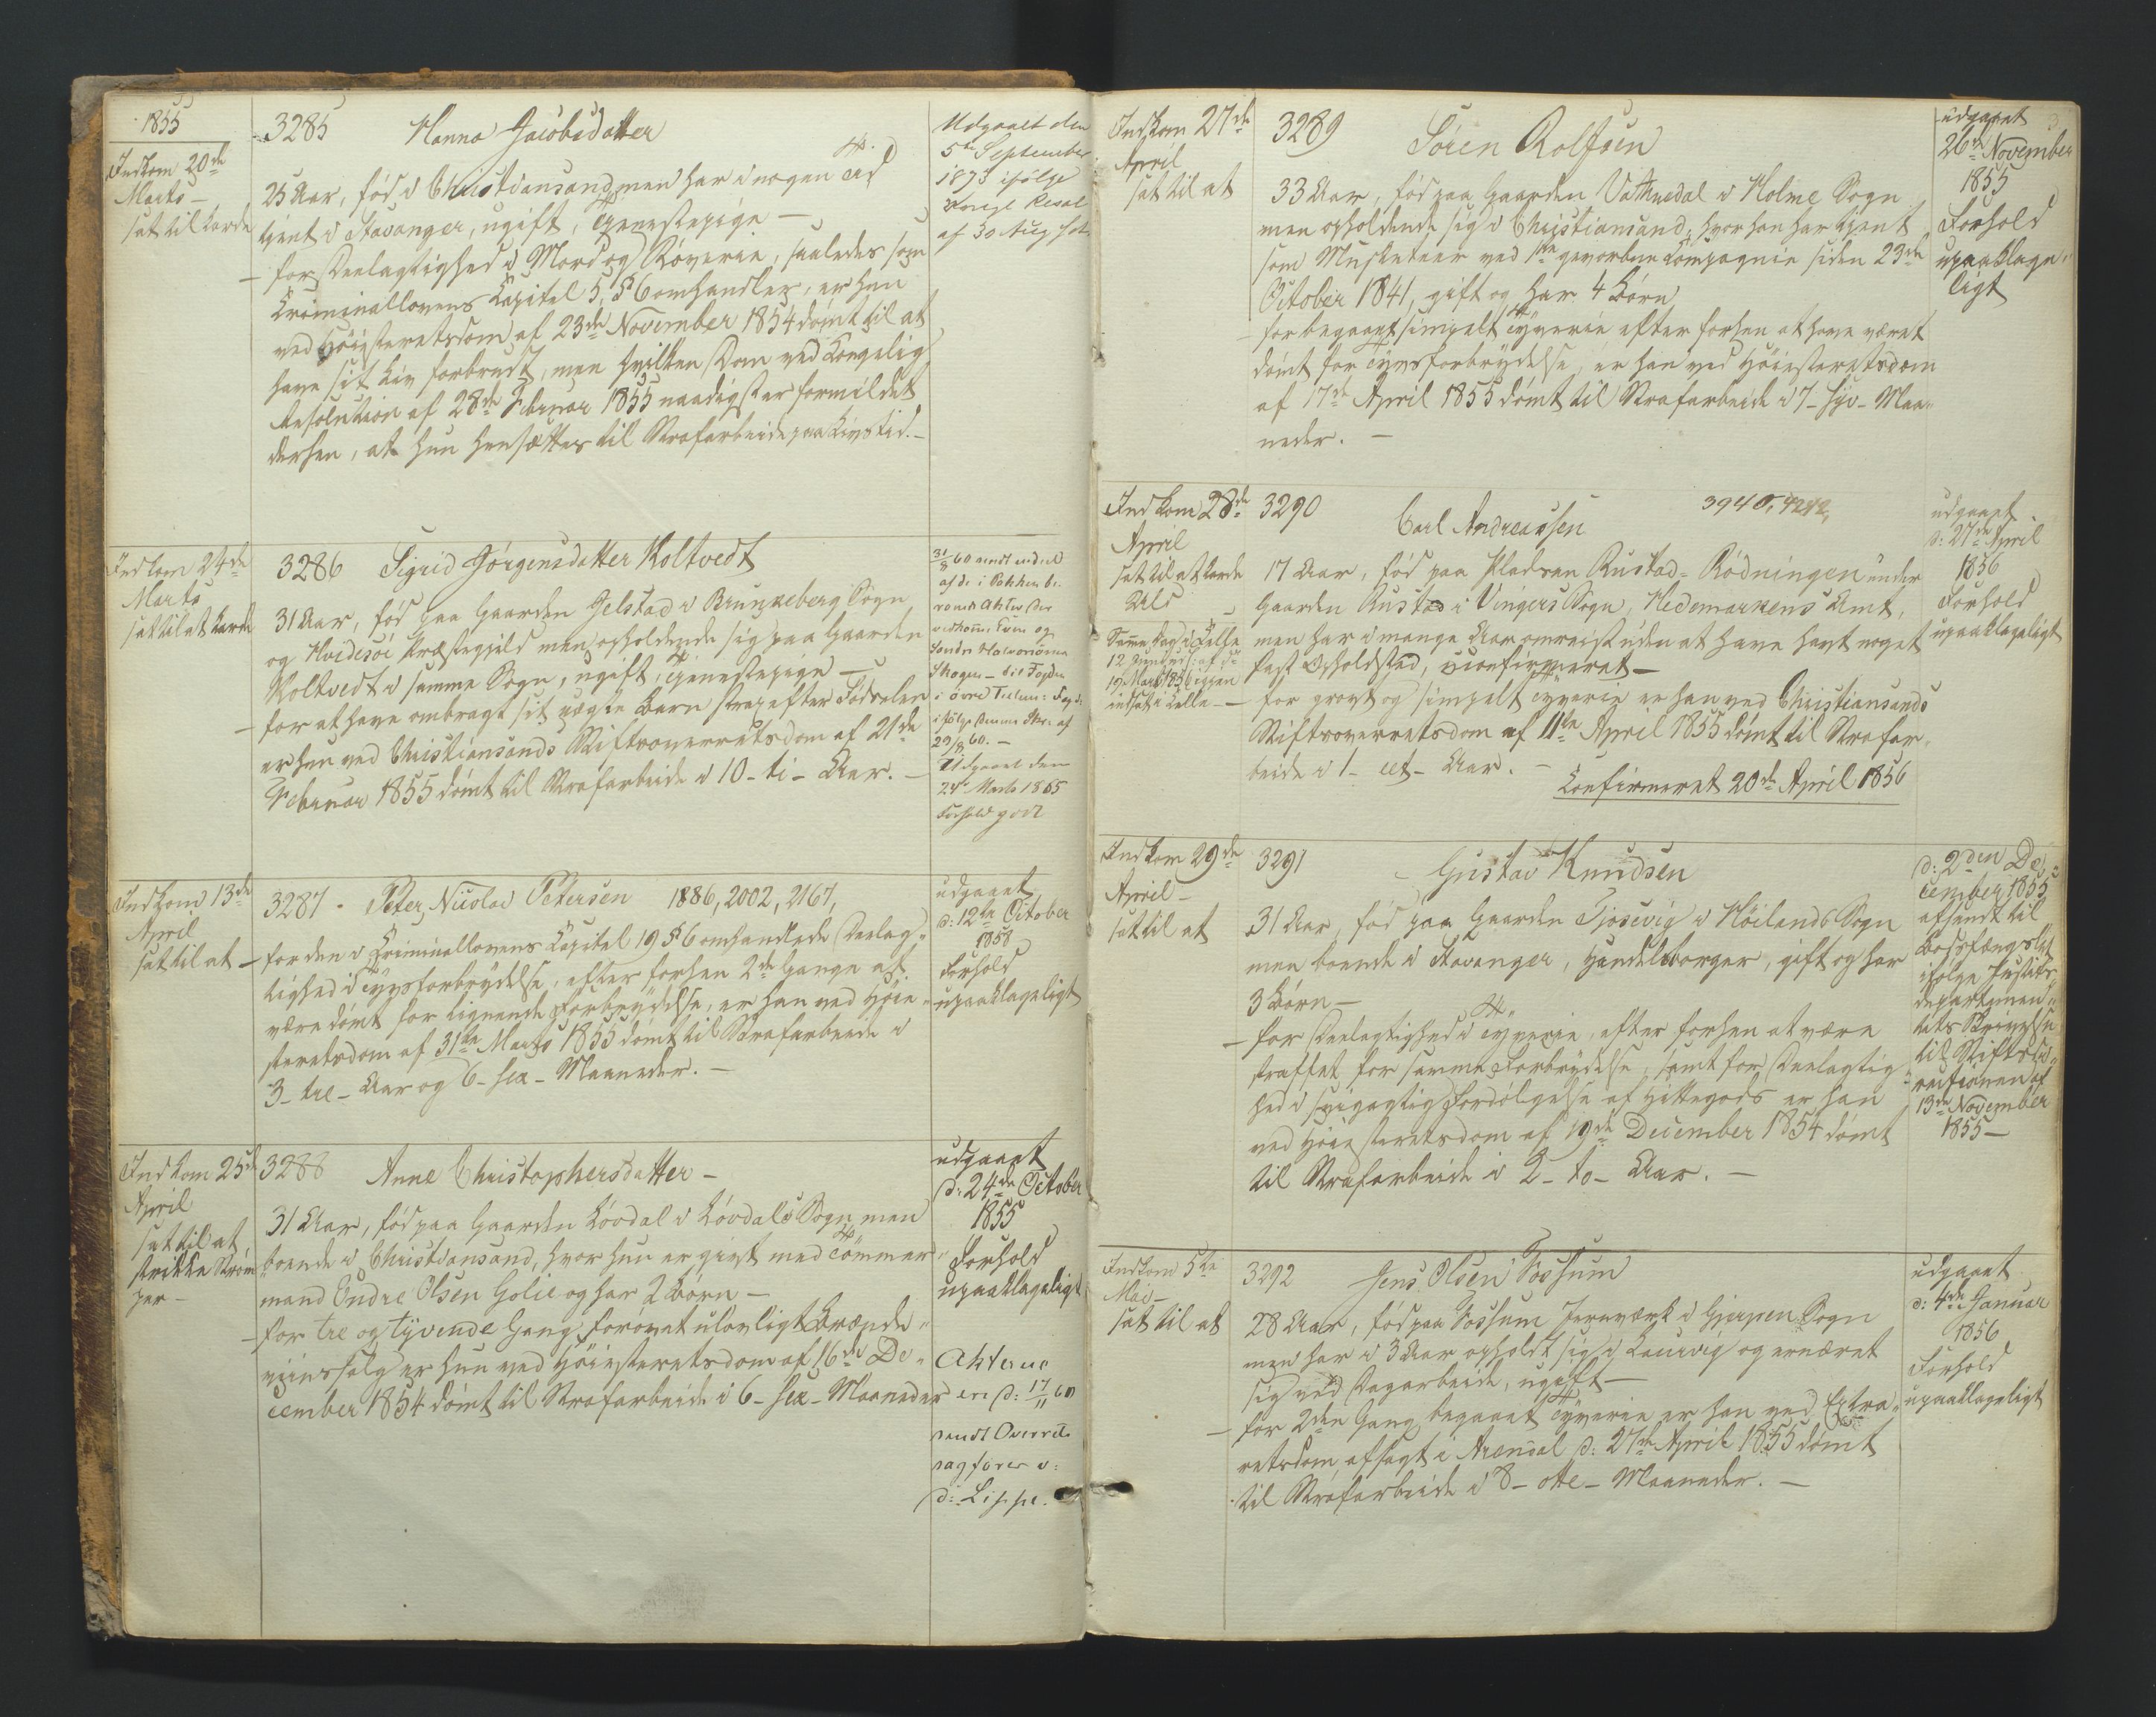 1855
Indkom 20de
Marts -
sat til karde
3285 Hanna Jacobsdatter
25 Aar, fød i Christiansand, men har i nogen Tid
tjent i Stavanger, ugift, Tjenestepige -
- for Deelagtighed i Mord og Røverie, saaledes som
Criminallovens Capitel 5, § 6 omhandler, er hun
ved Høiesteretsdom af 23de November 1854 dømt til at
have sit Liv forbrudt, men hvilken Dom ved Kongelig
Resolution af 28de Februar 1855 naadigst er formildet
derhen, at hun hensættes til Strafarbeide paa Livstid. -
Udgaaet den
5te September
1873 ifølge
Kongl Resol
af 30 Aug s.A.
Indkom 24de
Marts
sat til at karde
3286 Sigrid Jørgensdatter Koltvedt
31 Aar, fød paa Gaarden Gelstad i Brunkeberg Sogn
og Hvidesøi Præstegjeld men opholdende sig paa Gaarden
Koltvedt i samme Sogn, ugift, Tjenestepige -
- for at have ombragt sit uægte Barn strax efter Fødselen
er hun ved Christiansands Stiftsoverretsdom af 21de
Februar 1855 dømt til Strafarbeide i 10 - ti - Aar. -
31/8 60 sendt
af de i Pakken be-
roende Akter
vedkom. Even og
Søndre
Skogen - til Fogden
i øvre Telem: Fogd:
ifølge dennes Skr. af
29/8 60. -
Udgaaet den
24de Marts 1865
Forhold godt
Indkom 13de
April
sat til at
3287 - Peter Nicolai Petersen 1886, 2002, 2167,
- for den i Criminallovens Capitel 19 § 6 omhandlede Deelag-
tighed i Tyvsforbrydelse, efter forhen 2de Gange at
være dømt for lignende Forbrydelse, er han ved Høie-
steretsdom af 31te Marts 1855 dømt til Strafarbeide i
3 - tre - Aar og 6 - sex - Maaneder. -
udgaaet
d: 12te October
1858
Forhold
upaaklageligt
Indkom 25de
April
sat til at
strikke Strøm-
per -
3288 Anne Christophersdatter -
31 Aar, fød paa Gaarden Løvdal i Løvdals Sogn men
boende i Christiansand, hvor hun er givt med Tømmer-
mand Endre Olsen Golie og har 2 Børn -
- for tre og tyvende Gang forøvet ulovligt Brænde-
viinssalg er hun ved Høiesteretsdom af 16de De-
cember 1854 dømt til Strafarbeide i 6 - sex - Maaneder
udgaaet
d: 24de October
1855
Forhold
upaaklageligt
Akterne
ere d: 17/11 60
sendt Overrets
sagfører v:
d: Lippe.
Indkom 27de
April
sat til at
3289 Søren Rolfsen
33 Aar, fød paa Gaarden Vathnedal i Holme Sogn
men opholdende sig i Christiansand, hvor han har tjent
som Musketeer ved 1ste gevorbne Compagnie siden 23de
October 1841, gift og har 4 Børn
- for begaaet simpelt Tyverie efter forhen at have været
dømt for Tyvsforbrydelse, er han ved Høiesteretsdom
af 17de April 1855 dømt til Strafarbeide i 7 - syv - Maa-
neder. -
udgaaet
26de November
1855
Forhold
upaaklage-
ligt
Indkom 28de
April
sat til at karde
Uld
Samme Dag i Celle
12
19 Marts 1856 igjen
indsat i Celle -
3290 Carl Andreassen 3940, 4242,
17 Aar, fød paa Pladsen Rustad-Rødningen under
Gaarden Rustad i Vingers Sogn, Hedemarkens Amt,
men har i mange Aar omreist uden at have havt noget
fast Opholdsted, uconfirmeret -
- for grovt og simpelt Tyverie er han ved Christiansands
Stiftsoverretsdom af 11te April 1855 dømt til Strafar-
beide i 1 - eet - Aar. -
Confirmeret 20de April 1856
udgaaet
d: 27de April
1856
Forhold
upaaklageligt
Indkom 29de
April -
sat til at
3291 - Gustav Knudsen
31 Aar, fød paa Gaarden Tjosevig i Höilands Sogn
men boende i Stavanger, Handelsborger, gift og har
3 Børn -
- for Deelagtighed i Tyverie, efter forhen at være
straffet for samme Forbrydelse, samt for Deelagtig-
hed i svigagtig Fordølgelse af Hittegods er han
ved Høiesteretsdom af 19de December 1854 dømt
til Strafarbeide i 2 - to - Aar. -
d: 2den De-
cember 1855
afsendt til
Bodsfængslet
ifølge Justits-
departemen-
tets Skrivelse
til Stiftsdi-
rectionen af
13de November
1855 -
Indkom 5te
Mai -
sat til at
3292 Jens Olsen Fossum
28 Aar, fød paa Fossum Jernværk i Gjerpen Sogn
men har i 3 Aar opholdt sig i Laurvig og ernæret
sig ved Dagarbeide, ugift -
- for 2den Gang begaaet Tyverie er han ved Extra-
retsdom afsagt i Arendal d: 27de April 1855 dømt
til Strafarbeide i 8 - otte - Maaneder. -
udgaaet
d: 4de Januar
1856
Forhold
upaaklageligt